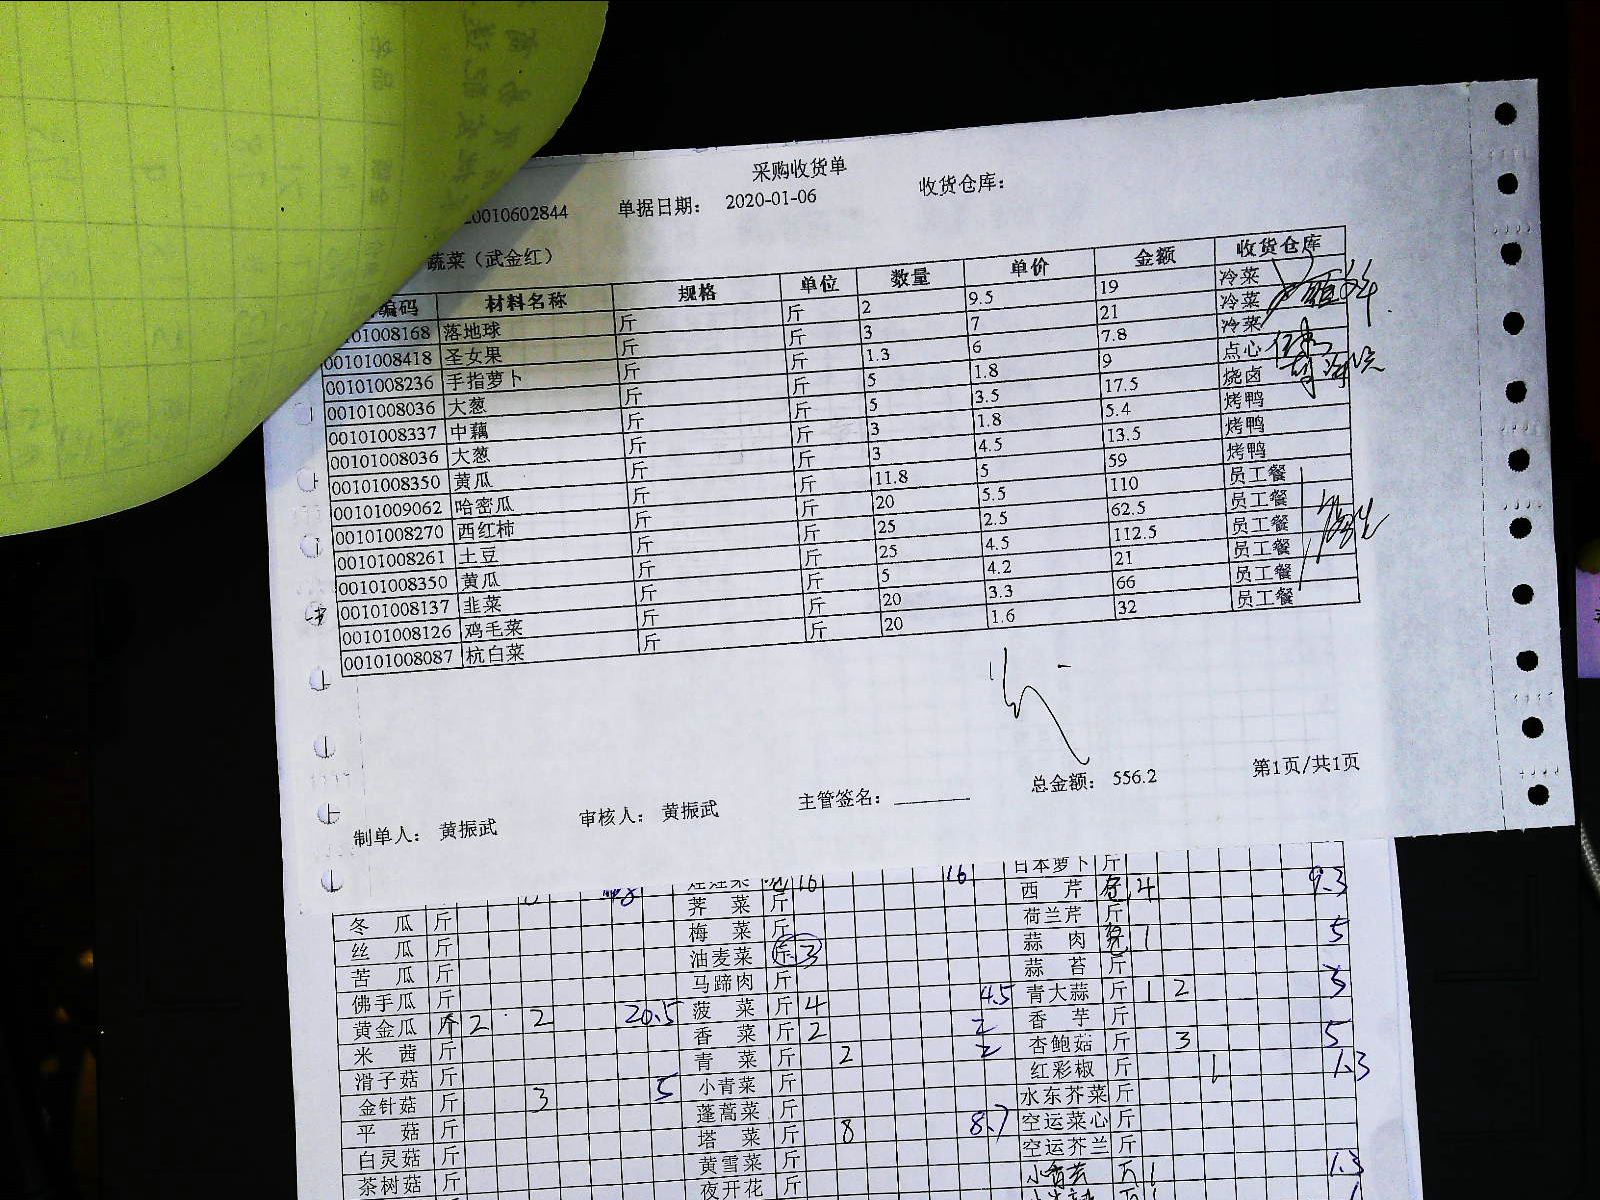 采购收货单
20010602844 单据日期： 2020-01-06 收货仓库：
蔬菜（武金红）
编码 材料名称 规格 单位 数量 单价 金额 收货仓库
01008168 落地球 斤 斤 2 9.5 19 冷菜
00101008418 圣女果 斤 斤 3 7 21 冷菜
00101008236 手指萝卜 斤 斤 1.3 6 7.8 冷菜
00101008036 大葱 斤 斤 5 1.8 9 点心
00101008337 中藕 斤 斤 5 3.5 17.5 烧卤
00101008036 大葱 斤 斤 3 1.8 5.4 烤鸭
00101008350 黄瓜 斤 斤 3 4.5 13.5 烤鸭
00101009062 哈密瓜 斤 斤 11.8 5 59 烤鸭
00101008270 西红柿 斤 斤 20 5.5 110 员工餐
00101008261 土豆 斤 斤 25 2.5 62.5 员工餐
00101008350 黄瓜 斤 斤 25 4.5 112.5 员工餐
00101008137 韭菜 斤 斤 5 4.2 21 员工餐
00101008126 鸡毛菜 斤 斤 20 3.3 66 员工餐
00101008087 杭白菜 斤 斤 20 1.6 32 员工餐
制单人： 黄振武 审核人： 黄振武 主管签名： 总金额： 556.2 第1页/共1页
16 16 日本萝卜 斤
荠菜 斤 西芹 4 9.3
冬瓜 斤 梅菜 斤 荷兰芹 斤
丝瓜 斤 油麦菜 斤 3 蒜肉 1 5
苦瓜 斤 马蹄肉 斤 蒜苔 斤
佛手瓜 斤 菠菜 斤 4 4.5 青大蒜 斤 1 2 3
黄金瓜 2 2 20.5 香菜 斤 2 2 香芋 斤
米茜 斤 青菜 斤 2 2 杏鲍菇 斤 3 5
滑子菇 斤 小青菜 斤 红彩椒 斤 1 1.3
金针菇 斤 3 5 蓬蒿菜 斤 水东芥菜 斤
平菇 斤 塔菜 斤 8 8.7 空运菜心 斤
白灵菇 斤 黄雪菜 斤 空运芥兰 斤
茶树菇 斤 夜开花 斤 1 1.3